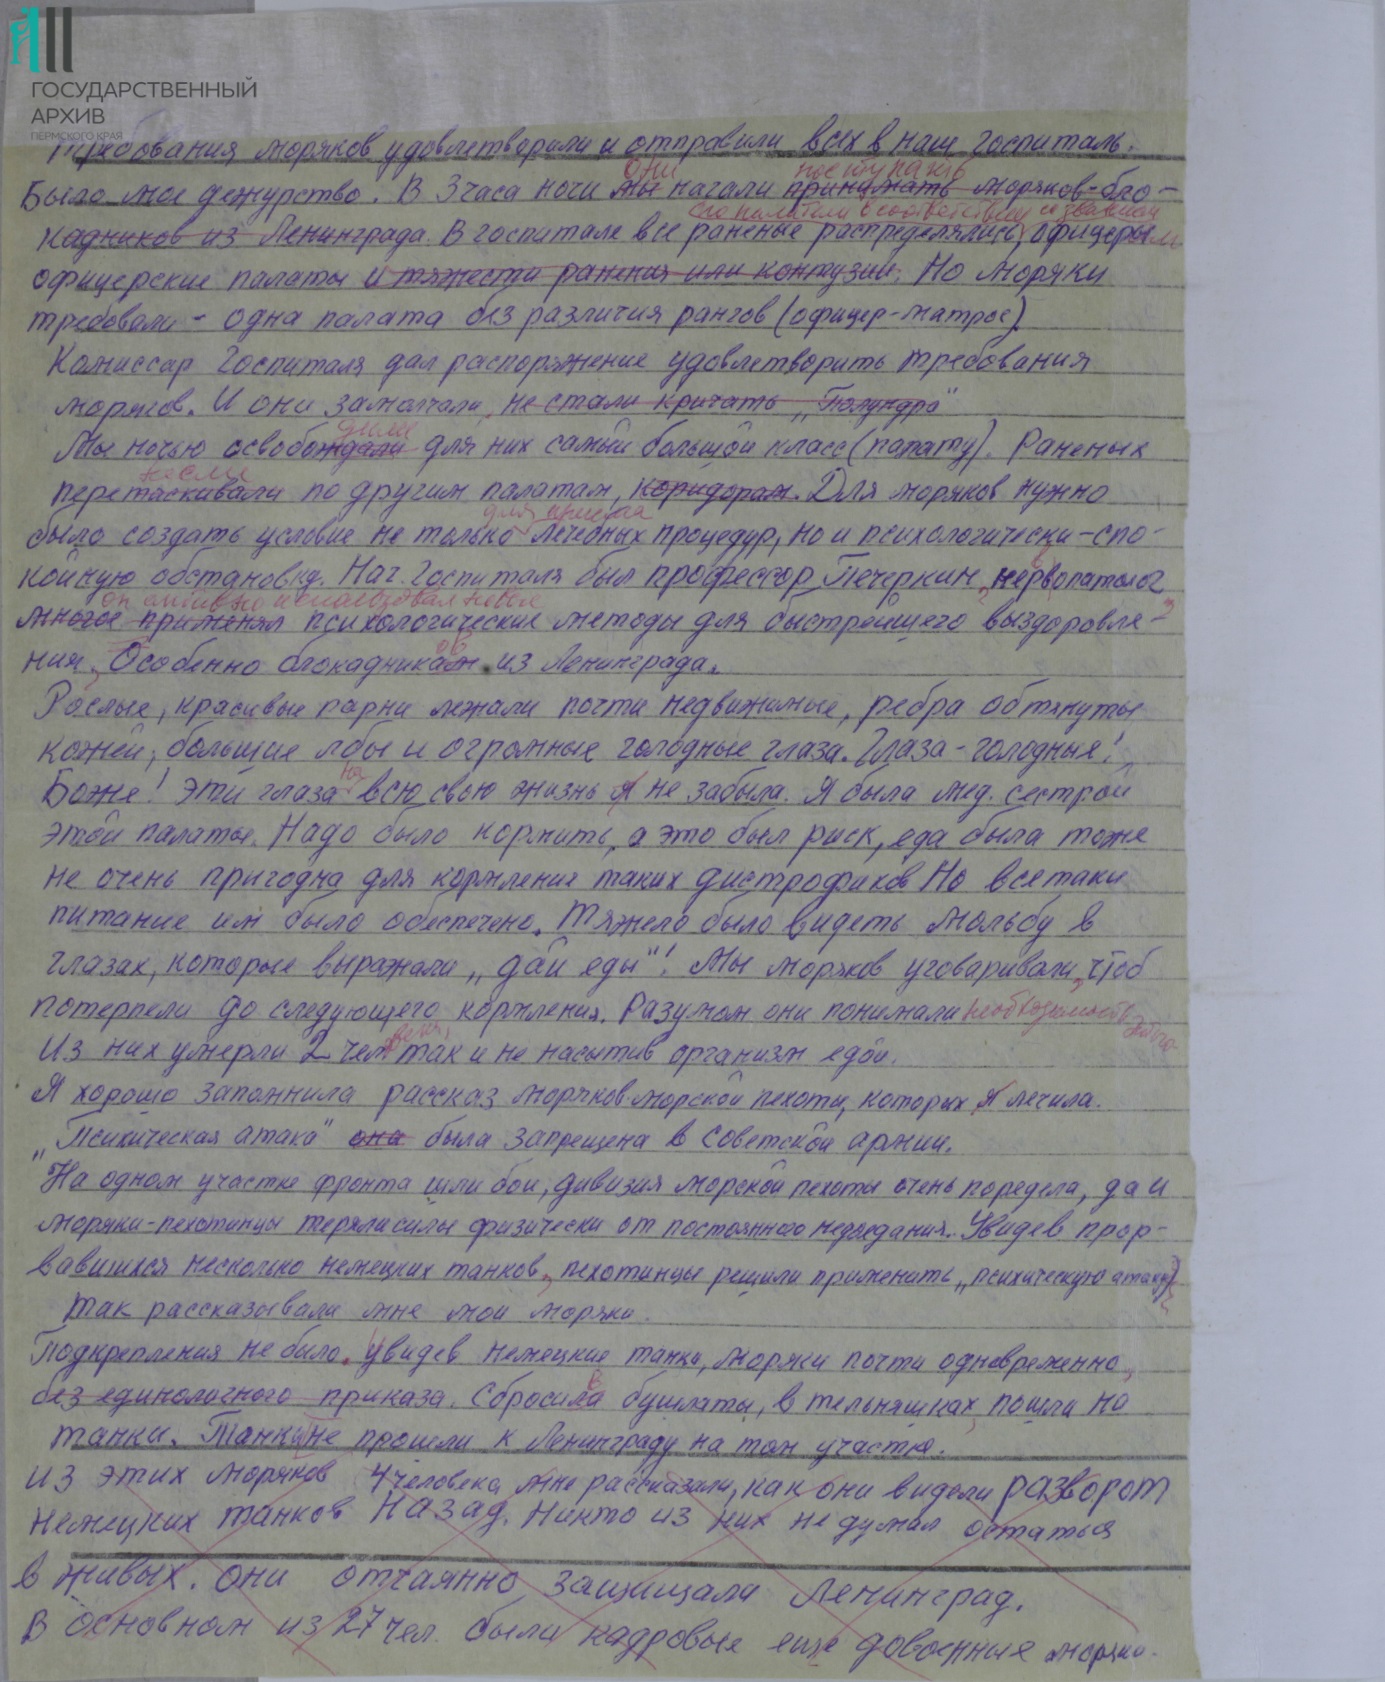 ГОСУДАРСТВЕННЫЙ
АРХИВ
ПЕРМСКОГО КРАЯ
Требования моряков удовлетворили и отправили всех в наш госпиталь.
они поступать
Было мое дежурство. В 3 часа ночи мы начали принимать моряков-бло-
по палатам в соответствии со званием
кадников из Ленинграда. В госпитале все раненые распределялись, офицеры
офицерские палаты и тяжести ранения или контузии. Но моряки
требовали - одна палата без различия рангов (офицер-матрос).
Комиссар госпиталя дал распоряжение удовлетворить требования
моряков. И они замолчали, не стали кричать „Полундра"
дили
Мы ночью освобождали для них самый большой класс (палату). Раненых
несли
перетаскивали по другим палатам, коридорам. Для моряков нужно
для приема
было создать условие не только лечебных процедур, но и психологически-спо-
койную обстановку. Нач. госпиталя был профессор Печеркин, нервопатолог,
он активно использовал новые
многое применял психологические методы для быстрейшего выздоровле-
ния, Особенно блокадникам из Ленинграда.
Рослые, красивые парни лежали почти недвижимые, ребра обтянуты
кожей, большие лбы и огромные голодные глаза. Глаза - голодные!
на
Боже! Эти глаза всю свою жизнь я не забыла. Я была мед. сестрой
этой палаты. Надо было кормить, а это был риск, еда была тоже
не очень пригодна для кормления таких дистрофиков Но всетаки
питание им было обеспечено. Тяжело было видеть мольбу в
глазах, которые выражали „дай еды"! Мы моряков уговаривали, чтоб
потерпели до следующего кормления. Разумом они понимали необходимость этого
Из них умерли 2 чел так и не насытив организм едой.
Я хорошо запомнила рассказ моряков морской пехоты, которых я лечила.
„Психическая атака" она была запрещена в советской армии.
„На одном участке фронта шли бои, дивизия морской пехоты очень поредела, да и
моряки-пехотинцы теряли силы физически от постоянного недоедания. Увидев прор-
вавшихся несколько немецких танков, пехотинцы решили применить „психическую атаку"
так рассказывали мне мои моряки.
Подкрепления не было. Увидев немецкие танки, моряки почти одновременно,
в
без единоличного приказа. Сбросила бушлаты, в тельняшках, пошли на
танки. Танки не прошли к Ленинграду на том участке.
Из этих моряков 4 человека мне рассказали, как они видели разворот
немецких танков назад. Никто из них не думал остаться
в живых. Они отчаянно защищали Ленинград.
В основном из 27 чел. были кадровые еще довоенные моряки.